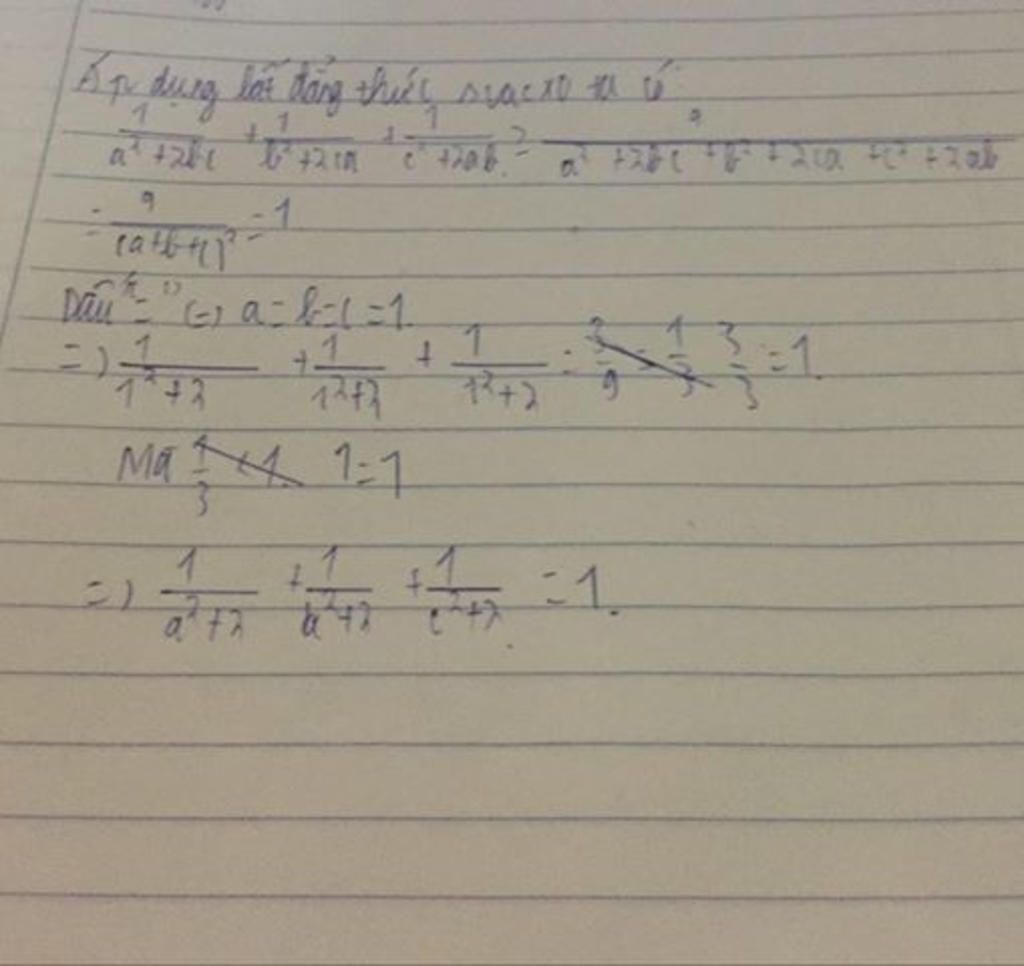 Áp dụng bất đẳng thức svacxơ ta có
1/(a² + 2bc) + 1/(b² + 2ca) + 1/(c² + 2ab) ≥ 9/(a² + 2bc + b² + 2ca + c² + 2ab)
= 9/(a+b+c)² = 1
Dấu "=" (=) a = b = c = 1.
=) 1/(1²+2) + 1/(1²+2) + 1/(1²+2) = 3/9 = 1/3 3/3 = 1.
Mà 1/3 < 1. 1 = 1
=) 1/(a²+2) + 1/(b²+2) + 1/(c²+2) = 1.